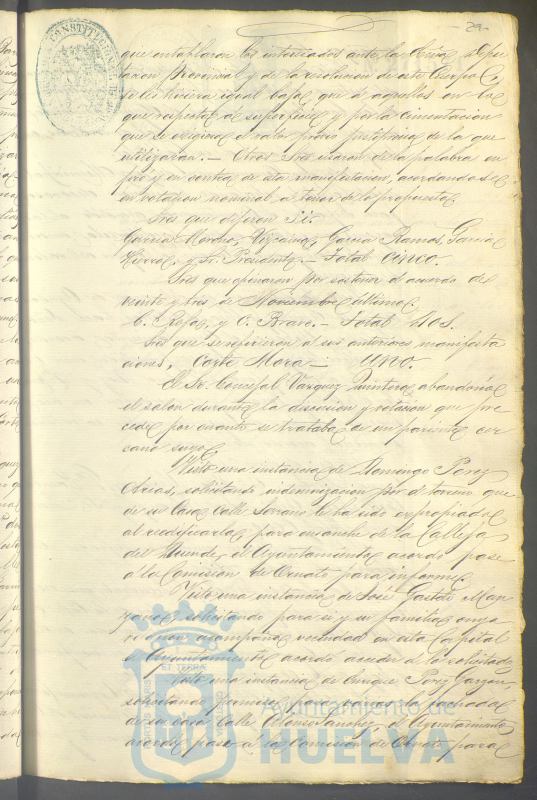 29
que entablaron los interesados ante la Excma. Dipu
tacion Provincial y de la resolucion de este Cuerpo,
se le hiciera igual baja que á aquellos en lo
que respecta á superficie y por la cimentacion
que se exigiera el valor previo de la que
utilizaran.- Otros Sres usaron de la palabra en
pro y en contra de esta manifestacion, acordandose
en votacion nominal á tenor de lo propuesto.
Sres que dijeron Si.
Garcia Moreno, Vizcaino, Garcia Ramos, Garcia
Hierro, y Sr. Presidente.- Total cinco.
Sres que opinaron por sostener el acuerdo de
veinte y tres de Noviembre último.
C. Rofa, y C. Bravo.- Total dos.
Sres que se refirieron á sus anteriores manifesta
ciones, Corte Mora- uno.
El Sr. Concejal Vazquez Quintero, abandonó
el salon durante la discusion y votacion que pre
cede por cuanto se trataba de un pariente cer
cano suyo.
Visto una instancia de Domingo Perez
Arias, solicitando indemnizacion por el terreno que
de su casa calle le ha sido expropiado
al reedificarla, para ensanche de la Calleja
del Duende, el Ayuntamiento acordó pase
á la Comision de Ornato para informe.
Visto una instancia de José Gastão Man
zano, solicitando para si y su familia, cuya
acompaña, vecindad en esta Capital
el Ayuntamiento acordó acceder á lo solicitado
Visto una instancia de Enrique Perez Garzon
solicitando permiso fachada
de su casa calle Alonso Sanchez, el Ayuntamiento
acordó pase á la Comision de Ornato para
Ayuntamiento de
HUELVA